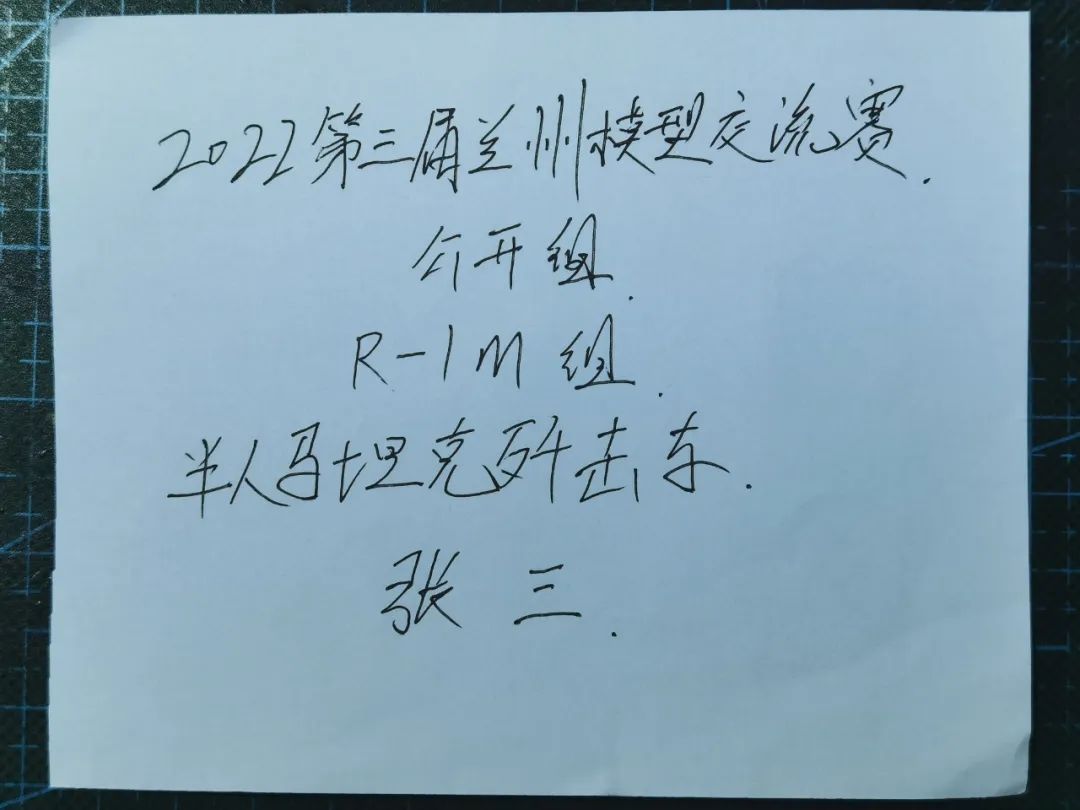 2022第三届兰州模型交流赛.
公开组.
R-1M组.
半人马坦克歼击车.
张三.